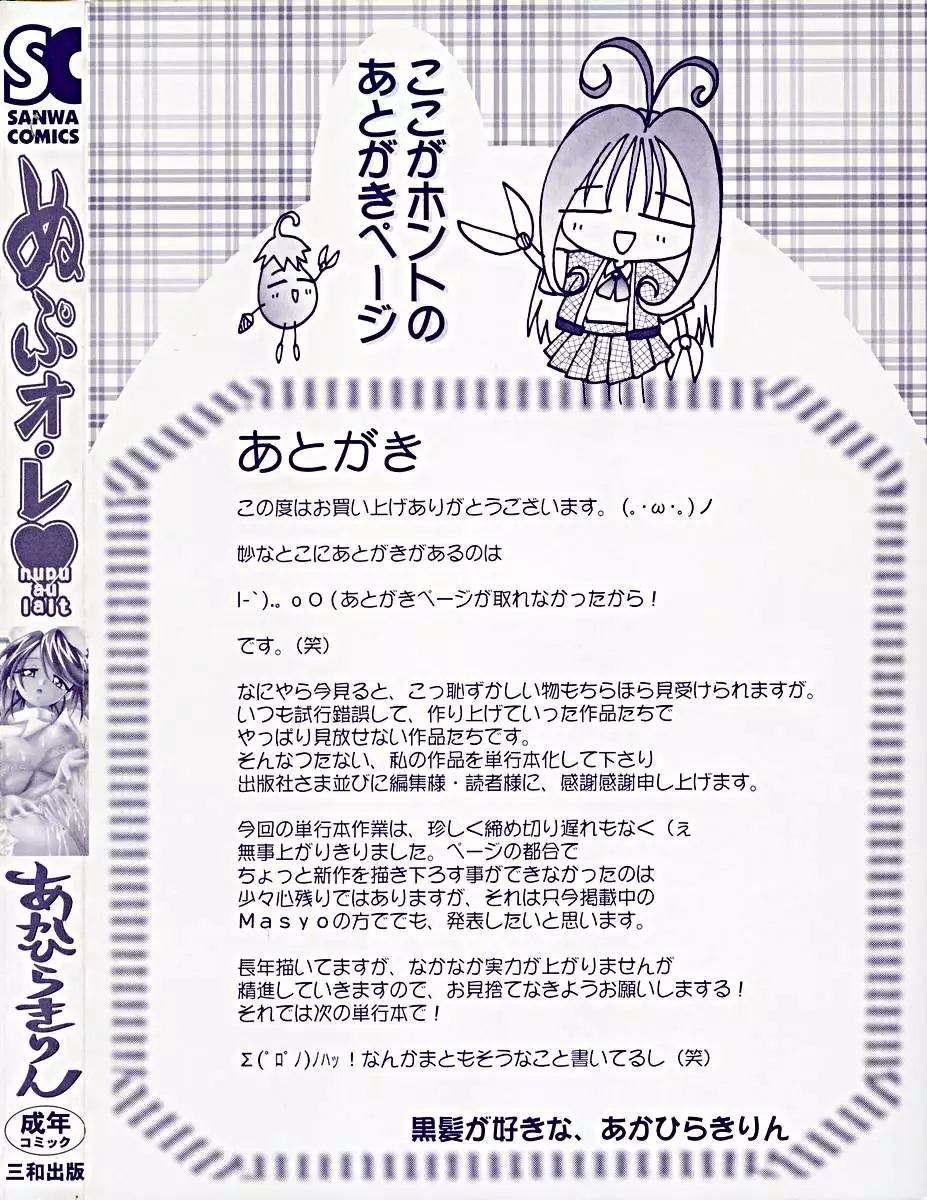 SC
SANWA
COMICS
ぬぷオ・レ
nupu
au
lait
あかひらきりん
成年
コミック
三和出版
ここがホントの
あとがきページ
あとがき
この度はお買い上げありがとうございます。(｡･ω･｡)ノ
妙なとこにあとがきがあるのは
|-`).｡oO(あとがきページが取れなかったから！
です。(笑)
なにやら今見ると、こっ恥ずかしい物もちらほら見受けられますが。
いつも試行錯誤して、作り上げていった作品たちで
やっぱり見放せない作品たちです。
そんなつたない、私の作品を単行本化して下さり
出版社さま並びに編集様・読者様に、感謝感謝申し上げます。
今回の単行本作業は、珍しく締め切り遅れもなく（ぇ
無事上がりきりました。ページの都合で
ちょっと新作を描き下ろす事ができなかったのは
少々心残りではありますが、それは只今掲載中の
Ｍａｓｙｏの方ででも、発表したいと思います。
長年描いてますが、なかなか実力が上がりませんが
精進していきますので、お見捨てなきようお願いしまする！
それでは次の単行本で！
Σ(ﾟﾛﾟﾉ)ﾉﾊｯ！なんかまともそうなこと書いてるし（笑）
黒髪が好きな、あかひらきりん